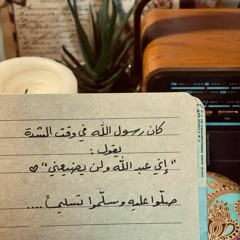 كان رسول الله في وقت الشدة
يقول :
"إني عبد الله ولن يضيعني" ♡
صلّوا عليه وسلّموا تسليماً ....